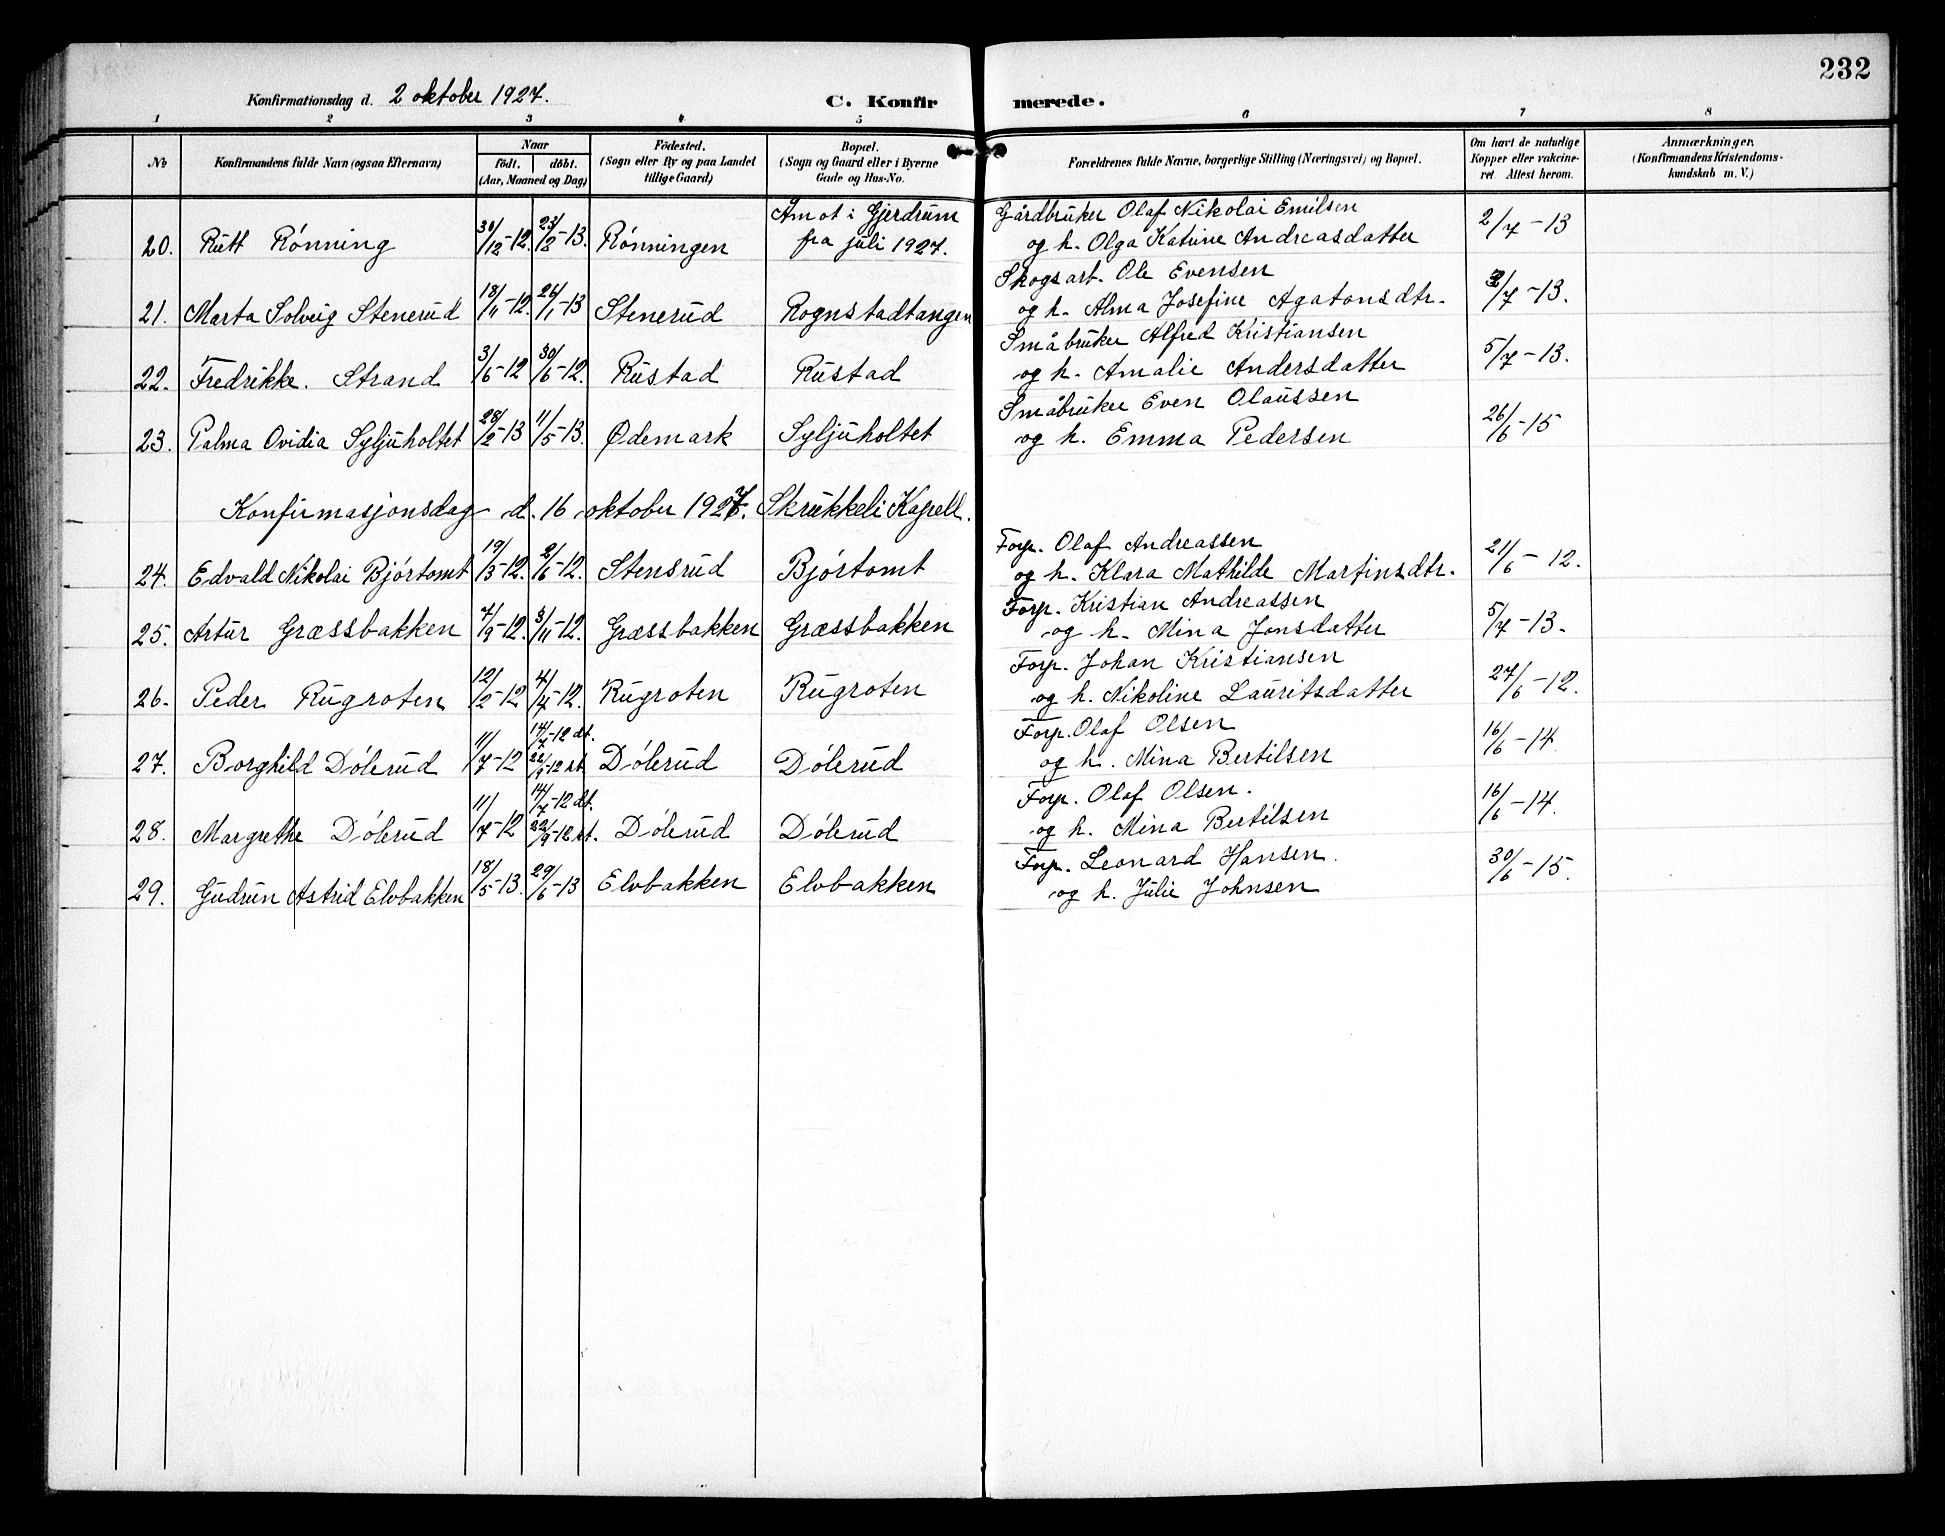 232
Konfirmationsdag d. 2 oktober 1927. C. Konfirmerede.
1 2 3 4 5 6 7 8
No Konfirmandens fulde Navn (ogsaa Efternavn) Naar født. døbt. (Aar, Maaned og Dag) Fødested. (Sogn eller By og paa Landet tillige Gaard) Bopæl. (Sogn og Gaard eller i Byerne Gade og Hus-No. Forældrenes fulde Navne, borgerlige Stilling (Næringsvei) og Bopæl. Om havt de naturlige Kopper eller vakcineret Attest herom. Anmærkninger, (Konfirmandens Kristendomskundskab m. V.)
Åmot i Gjerdrum Gårdbruker Olaf Nikolai Emilsen
20. Rutt Rónning 12-12. 23/2-13. Rónningen fra juli 1927. og h. Olga Katrine Andreasdatter 2/7-13
Skogsarb. Ole Evensen
21. Marta Solveig Stenerud 18/11-12. 26/1-13 Stenerud Rognstadtangen og h. Alma Josefine Agatonsdtr. /7-13.
Småbruker Alfred Kristiansen
22. Fredrikke. Strand 3/6-12 30/6-12. Rustad Rustad og h. Amalie Andersdatter 5/7-13.
Småbruker Even Olaussen
23. Palma Ovidia Syljuholtet 28/2-13 11/5-13. Ødemark Syljuholtet og h. Emma Pedersen 26/6-15
Konfirmasjonsdag d. 16 oktober 1927. Skrukkeli Kapell.
Forp. Olaf Andreassen
24. Edvald Nikolai Bjórtomt 19/3-12. 2/6-12. Stensrud Bjórtomt og h. Klara Mathilde Martinsdtr. 21/6-12.
Forp. Kristian Andreassen
25. Artur Græssbakken 7/9-12. 3/11-12. Græssbakken Græssbakken og h. Mina Jonsdatter 5/7-13.
Forp. Johan Kristiansen
26. Peder Rugroten 12/2-12 4/4-12. Rugroten Rugroten og h. Nikoline Lauritsdatter 27/6-12.
14/7-12 dt. Forp. Olaf Olsen
27. Borghild Dólerud 11/7-12 22/9-12 st. Dólerud Dólerud og h. Mina Bertilsen 16/6-14.
14/7-12 dt. Forp. Olaf Olsen.
28. Margrethe Dólerud 11/7-12 22/9-12 st. Dólerud Dólerud og h. Mina Bertilsen 16/6-14.
Forp. Leonard Hansen.
29. Gudrun Astrid Elvbakken 18/5-13. 29/6-13 Elvbakken Elvbakken og h. Julie Johnsen 30/6-15.